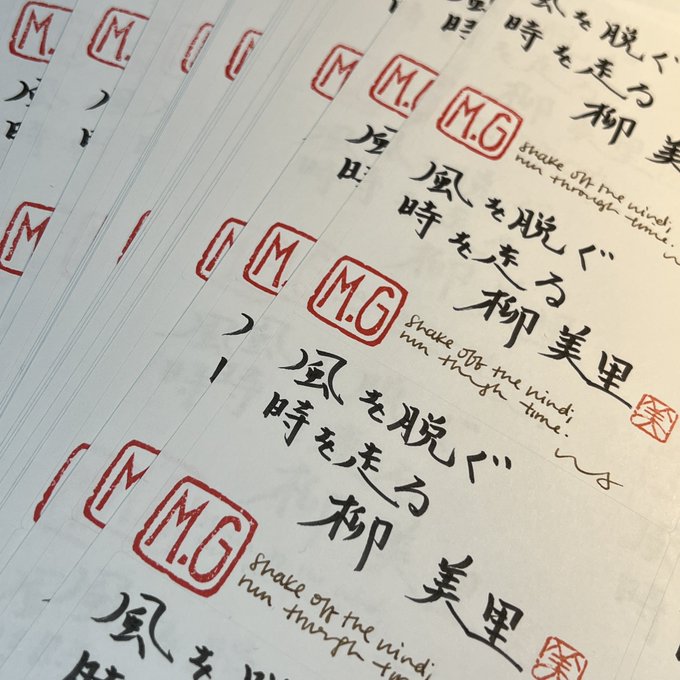 風を脱ぐ
時を走る
柳 美
M.G
shake off the wind,
run through time.
風を脱ぐ
時を走る
柳 美里
美
M.G
shake off the wind,
run through time.
風を脱ぐ
時を走る
柳 美里
美
M.G
shake off the wind,
run through
風を脱
時